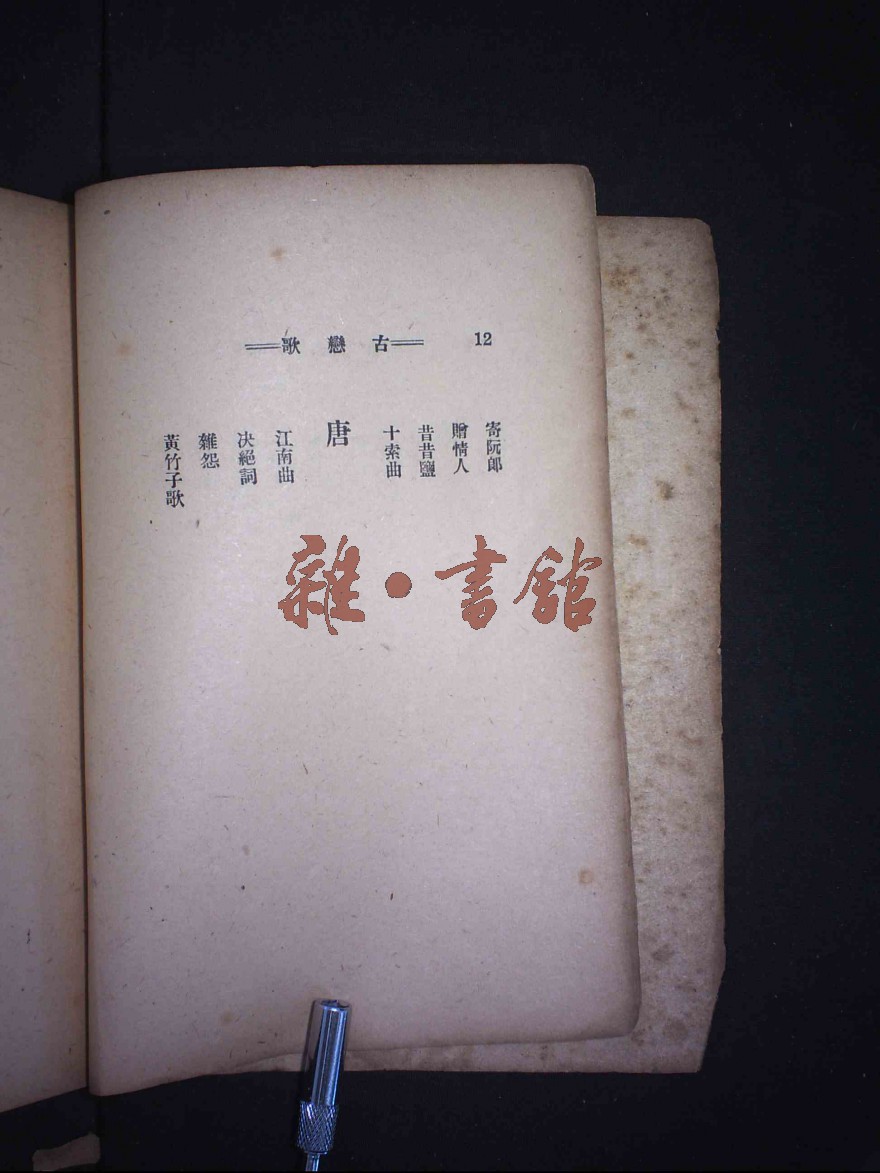 12 ==古戀歌==
寄阮郎
贈情人
昔昔鹽
十索曲
唐
江南曲
决絕詞
雜怨
黃竹子歌
雜·書館